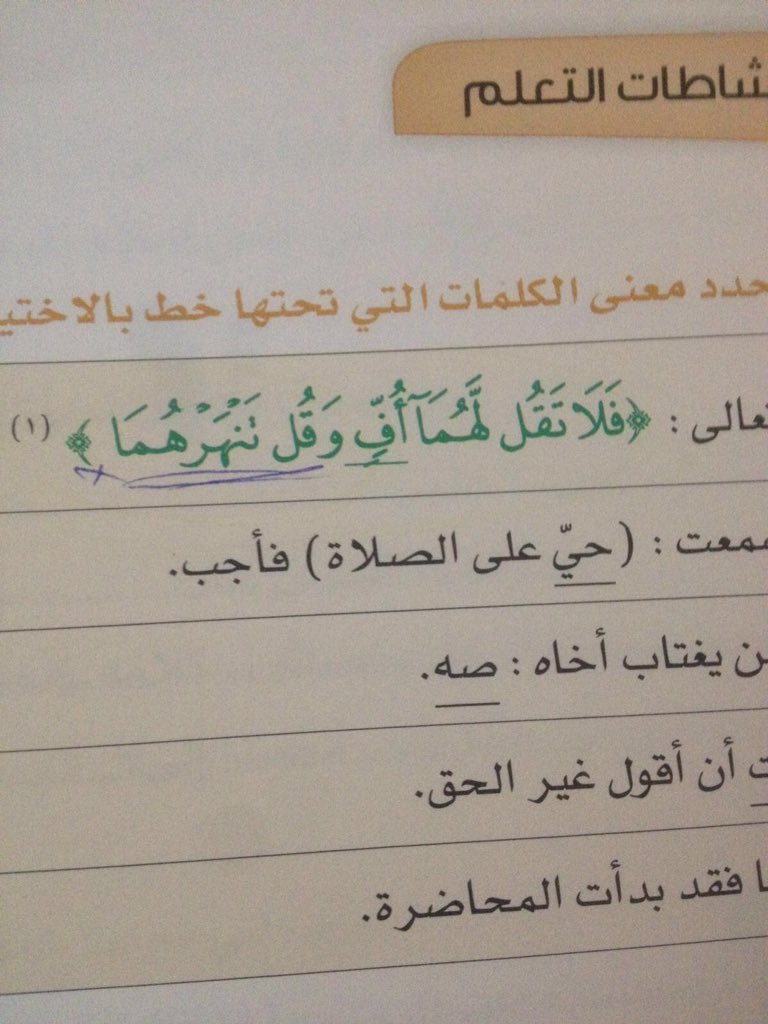 شاطات التعلم
حدد معنى الكلمات التي تحتها خط بالاختي
عالى : ﴿فَلَا تَقُل لَّهُمَآ أُفٍّ وَقُل تَنْهَرْهُمَا﴾ (١)
معت : (حيّ على الصلاة) فأجب.
ن يغتاب أخاه : صه.
ت أن أقول غير الحق.
ا فقد بدأت المحاضرة.